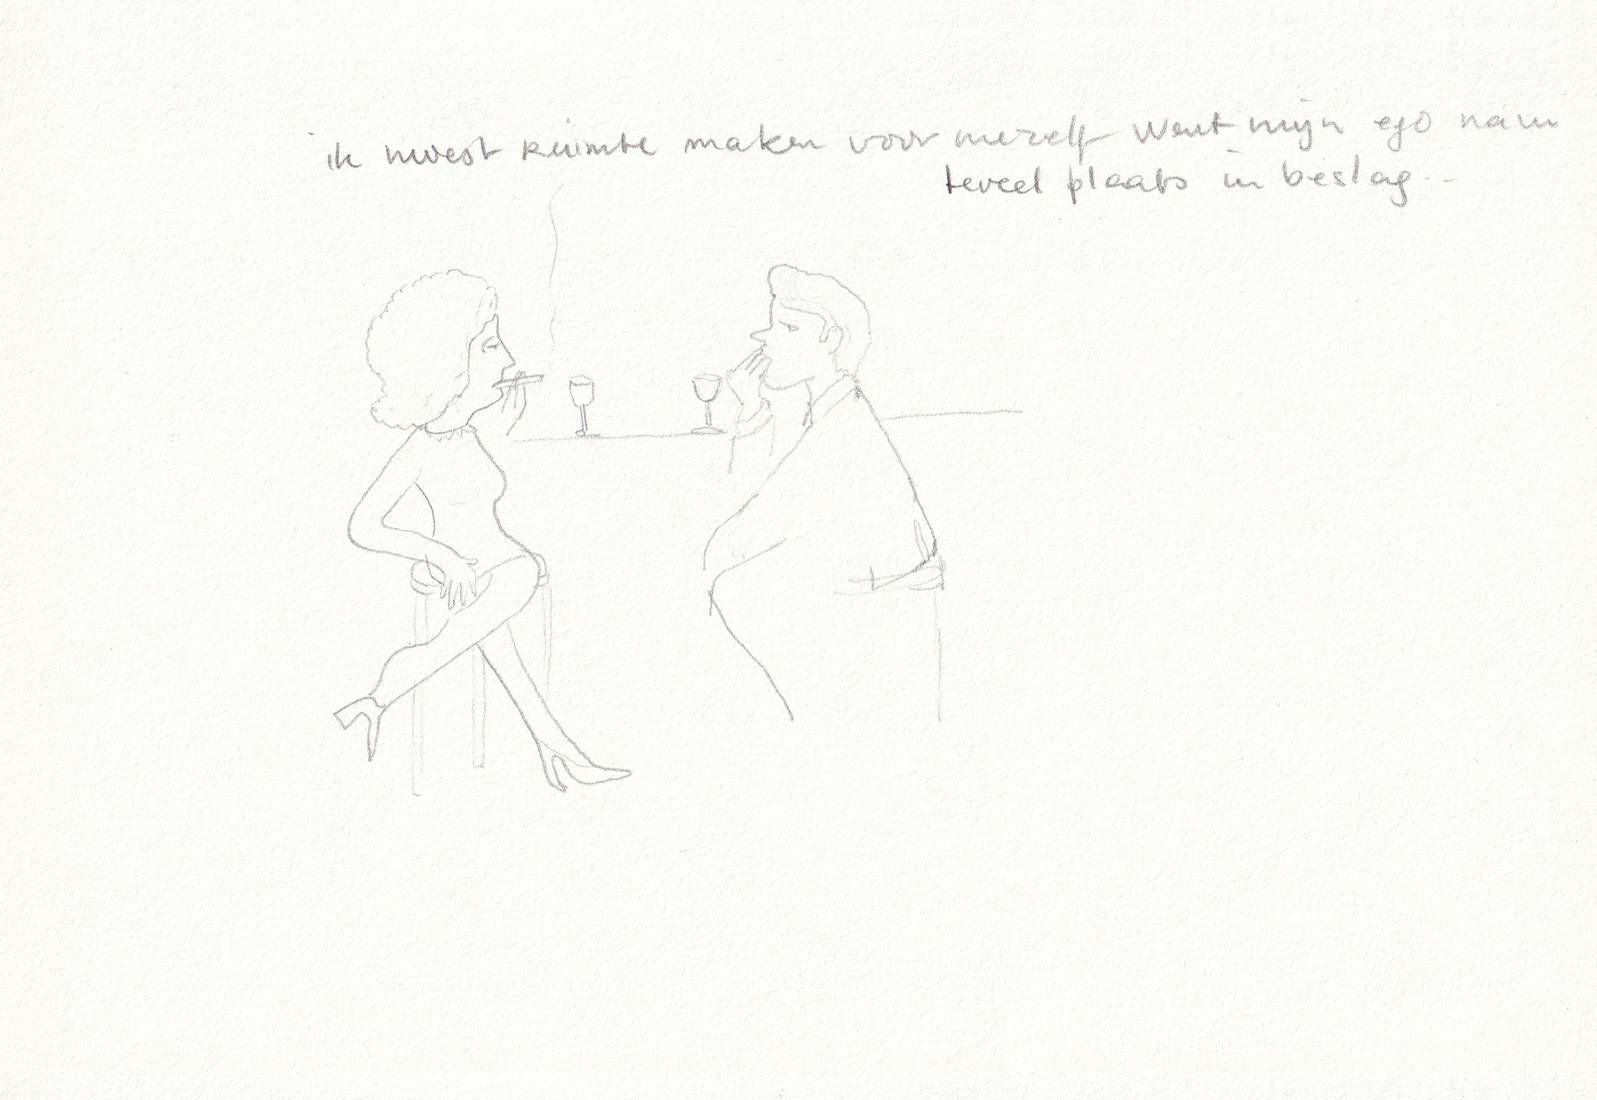 ik moest ruimte maken voor mezelf want mijn ego nam
teveel plaats in beslag...